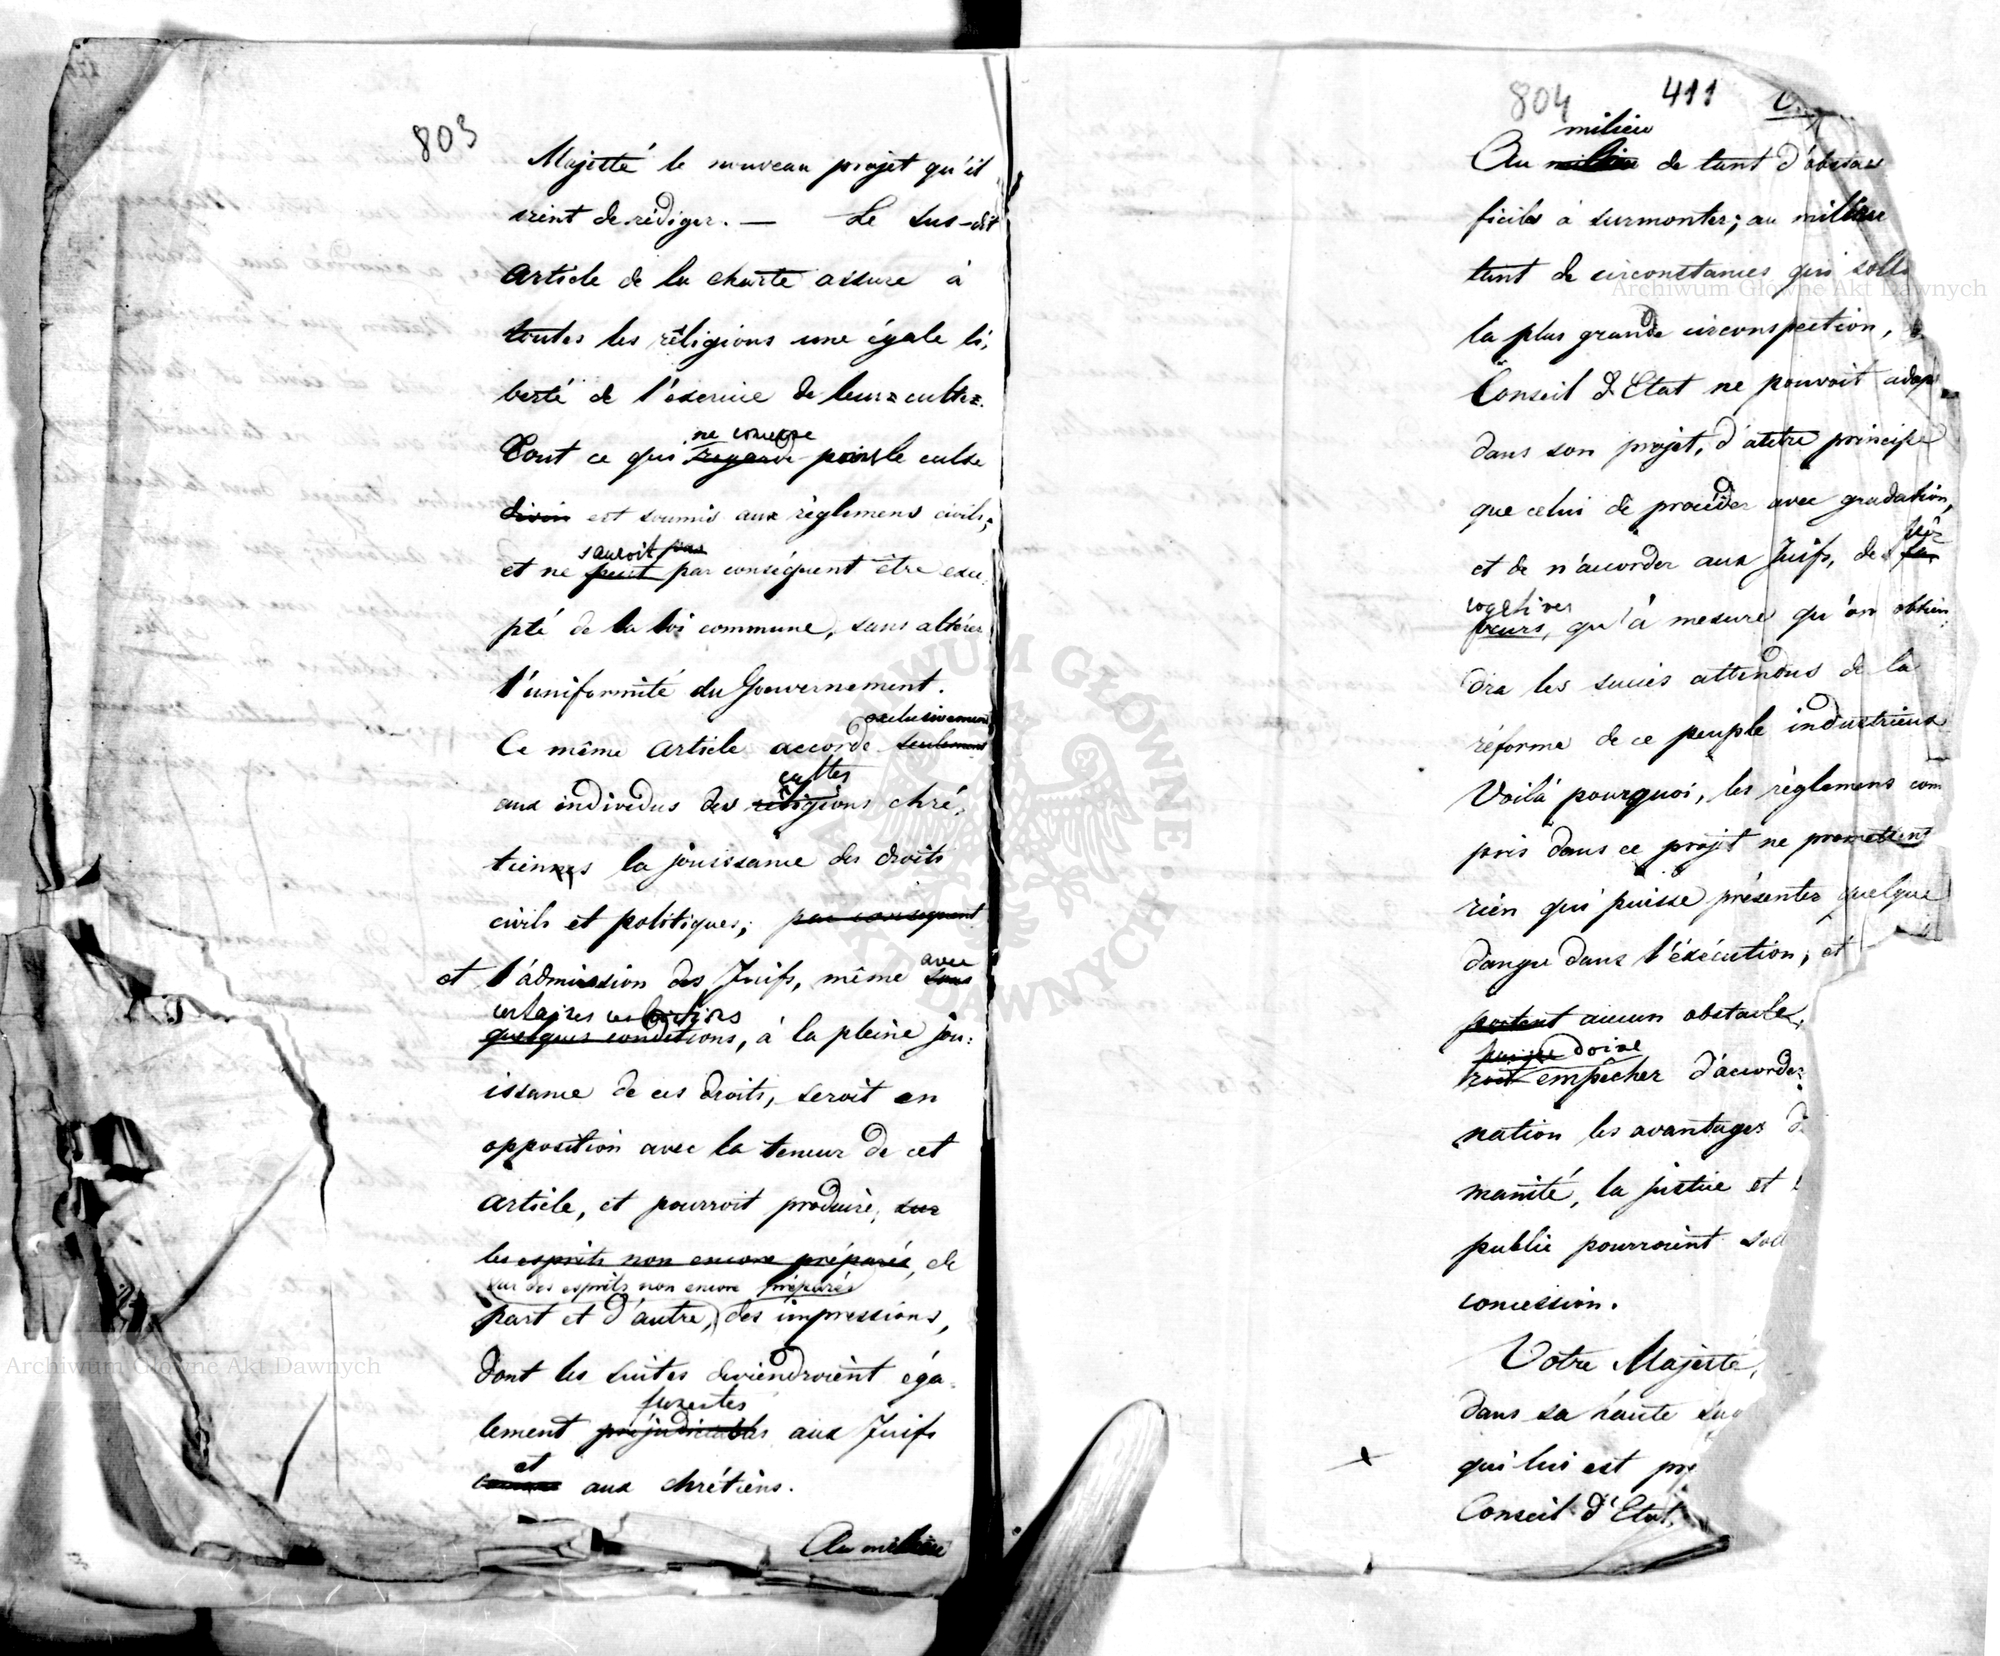 803
Majesté le nouveau projet qu'il
vient de rédiger. — Le sus-dit
article de la charte assure à
toutes les réligions une égale li,
berté de l'exercice de leurs cultes.
ne concerne
Tout ce qui regarde point le culte
divin est soumis aux règlemens civils,
sauroit pas
et ne peut par conséquent être exce,
pté de la loi commune, sans altérer
l'uniformité du Gouvernement.
exclusivement
Ce même article accorde seulement
cultes
aux individus des réligions chré,
tiennes la jouissance des droits
civils et politiques; par conséquent
avec
et l'admission des Juifs, même sous
certaines
quelques conditions, à la pleine jou:
issance de ces droits, seroit en
opposition avec la teneur de cet
article, et pourroit produire, sur
les esprits non encore préparés, de
sur des esprits non encore préparés
part et d'autre, des impressions,
dont les suites deviendroient éga,
funestes
lement préjudiciables aux Juifs
et
comme aux chrétiens.
Au milieu
804 411
milieu
Au milieu de tant d'obstac
ficiles à surmonter; au milieu
tant de circonstances qui solli
la plus grande circonspection,
Conseil d'Etat ne pouvoit adop
dans son projet, d'autre principe
que celui de procéder avec gradation,
prér
et de n'accorder aux Juifs, des fa
rogatives
veurs, qu'à mesure qu'on obtien
dra les succès attendus de la
réforme de ce peuple industrieux
Voilà pourquoi, les règlemens com
pris dans ce projet ne promettent
rien qui puisse présenter quelque
danger dans l'éxécution, et
portent aucun obstacle,
puisse doive
roit empecher d'accorder
nation les avantages d
manité, la justice et l
public pourroient sol
concession.
Votre Majesté,
dans sa haute sag
qui lui est pr
Conseil d'Etat.
Archiwum Główne Akt Dawnych
Archiwum Główne Akt Dawnych
ARCHIWUM GŁÓWNE AKT DAWNYCH